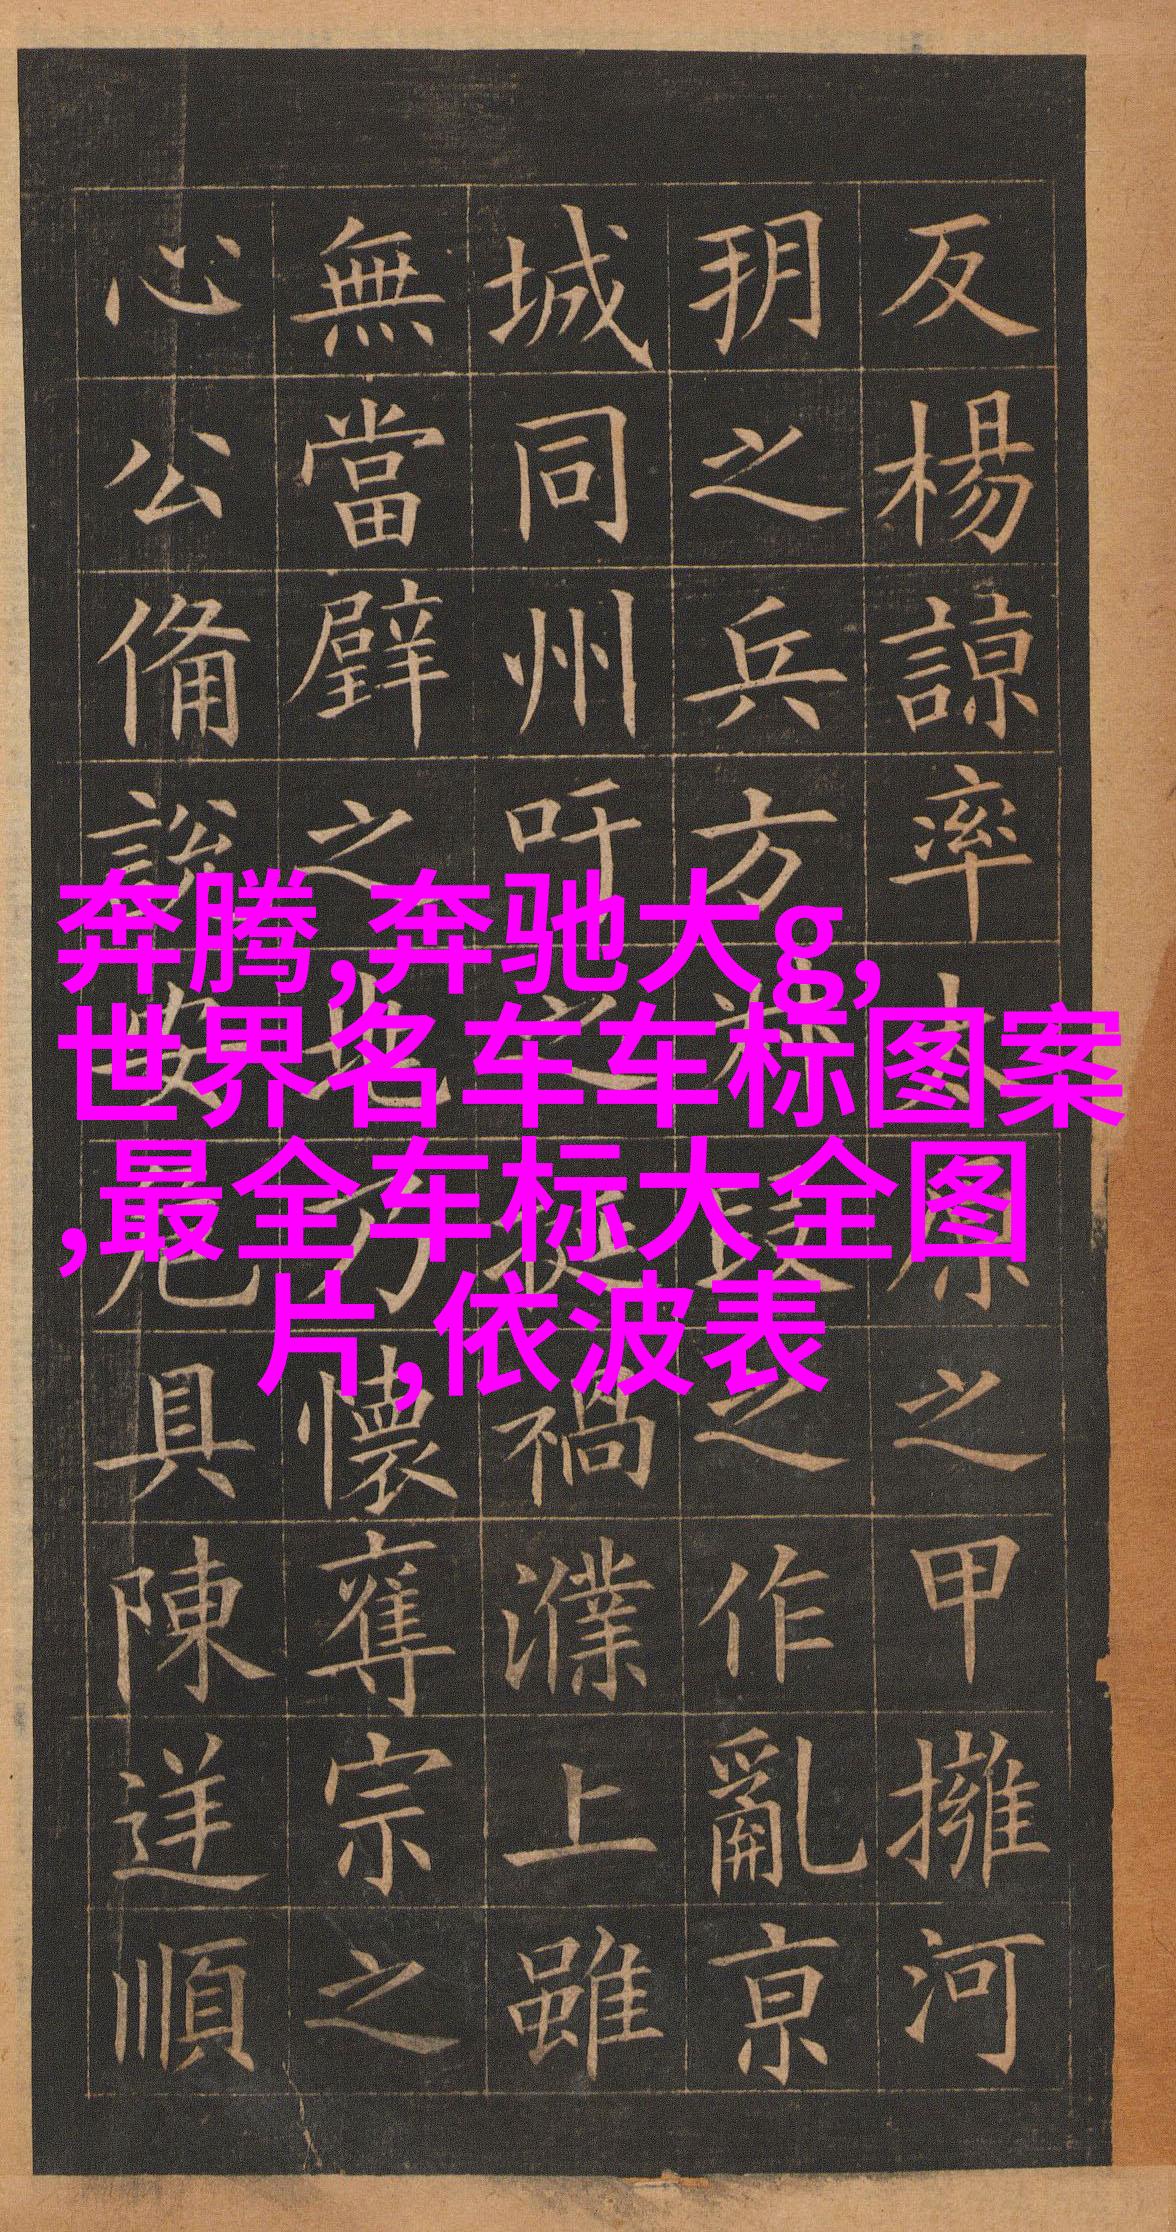 奔腾,奔驰大g,
世界名车车标图案
,最全车标大全图
片,依波表
反楊諒率太原之甲擁河
玥之兵方叔段之作亂京
城同州吁之挻禍濮上雖
無當璧之兆乃懷奪宗之
心公備說安危具陳逆順